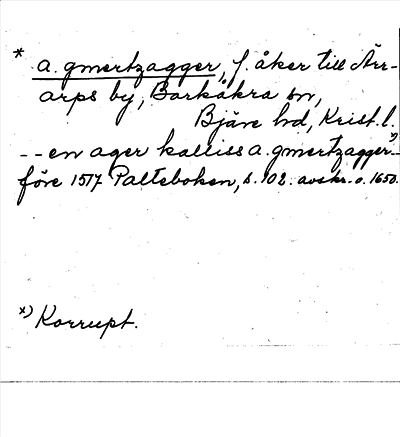 * a. gmertzagger, f. åker till Ärr-
arps by, Barkåkra sn,
Bjäre hd, Krist. l.
-- en ager kalliss a. gmertzagger x) --
före 1517 Palteboken, s. 102. avskr. o. 1650.
x) Korrupt.